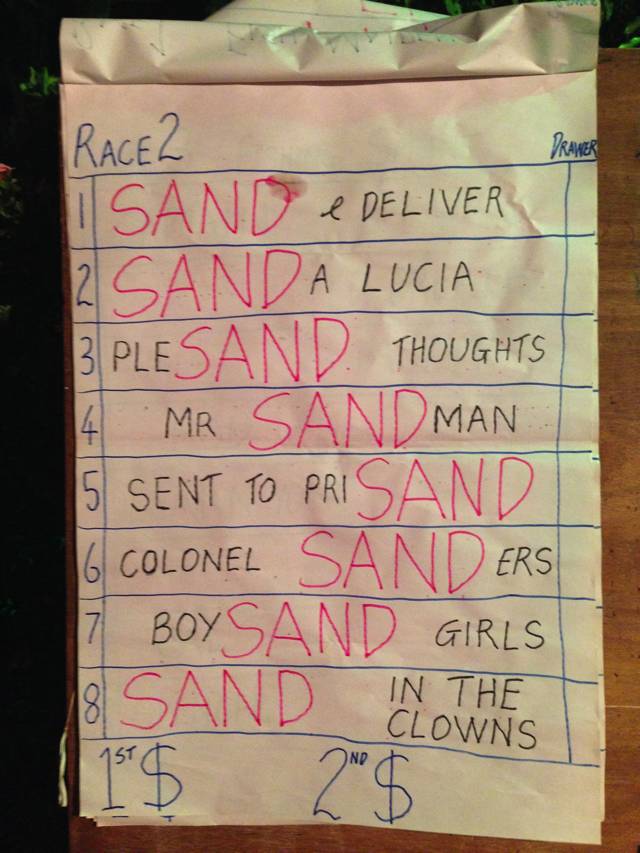 RACE 2 DRAWER
1 SAND e DELIVER
2 SANDA LUCIA
3 PLESAND THOUGHTS
4 MR SANDMAN
5 SENT TO PRISAND
6 COLONEL SANDERS
7 BOYSAND GIRLS
8 SAND IN THE
CLOWNS
1ST $ 2ND $